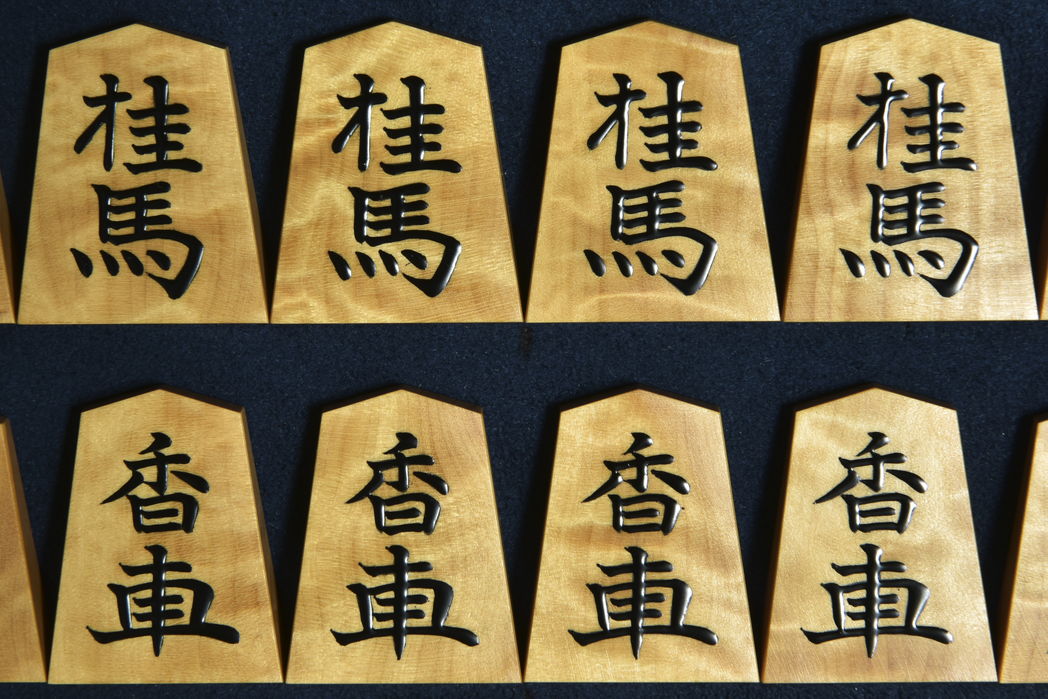 桂馬
桂馬
桂馬
桂馬
香車
香車
香車
香車